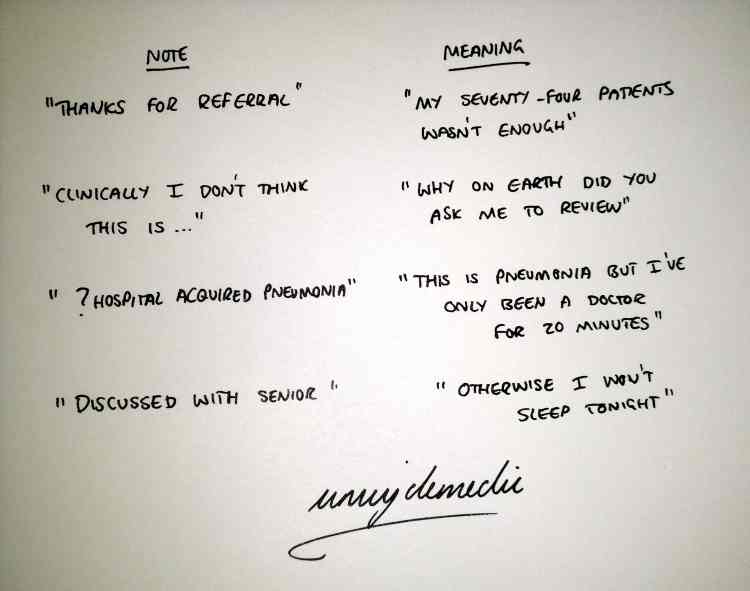 NOTE
MEANING
"THANKS FOR REFERRAL"
"MY SEVENTY-FOUR PATIENTS
WASN'T ENOUGH"
"CLINICALLY I DON'T THINK
THIS IS ..."
"WHY ON EARTH DID YOU
ASK ME TO REVIEW"
"?HOSPITAL ACQUIRED PNEUMONIA"
"THIS IS PNEUMONIA BUT I'VE
ONLY BEEN A DOCTOR
FOR 20 MINUTES"
"DISCUSSED WITH SENIOR"
"OTHERWISE I WON'T
SLEEP TONIGHT"